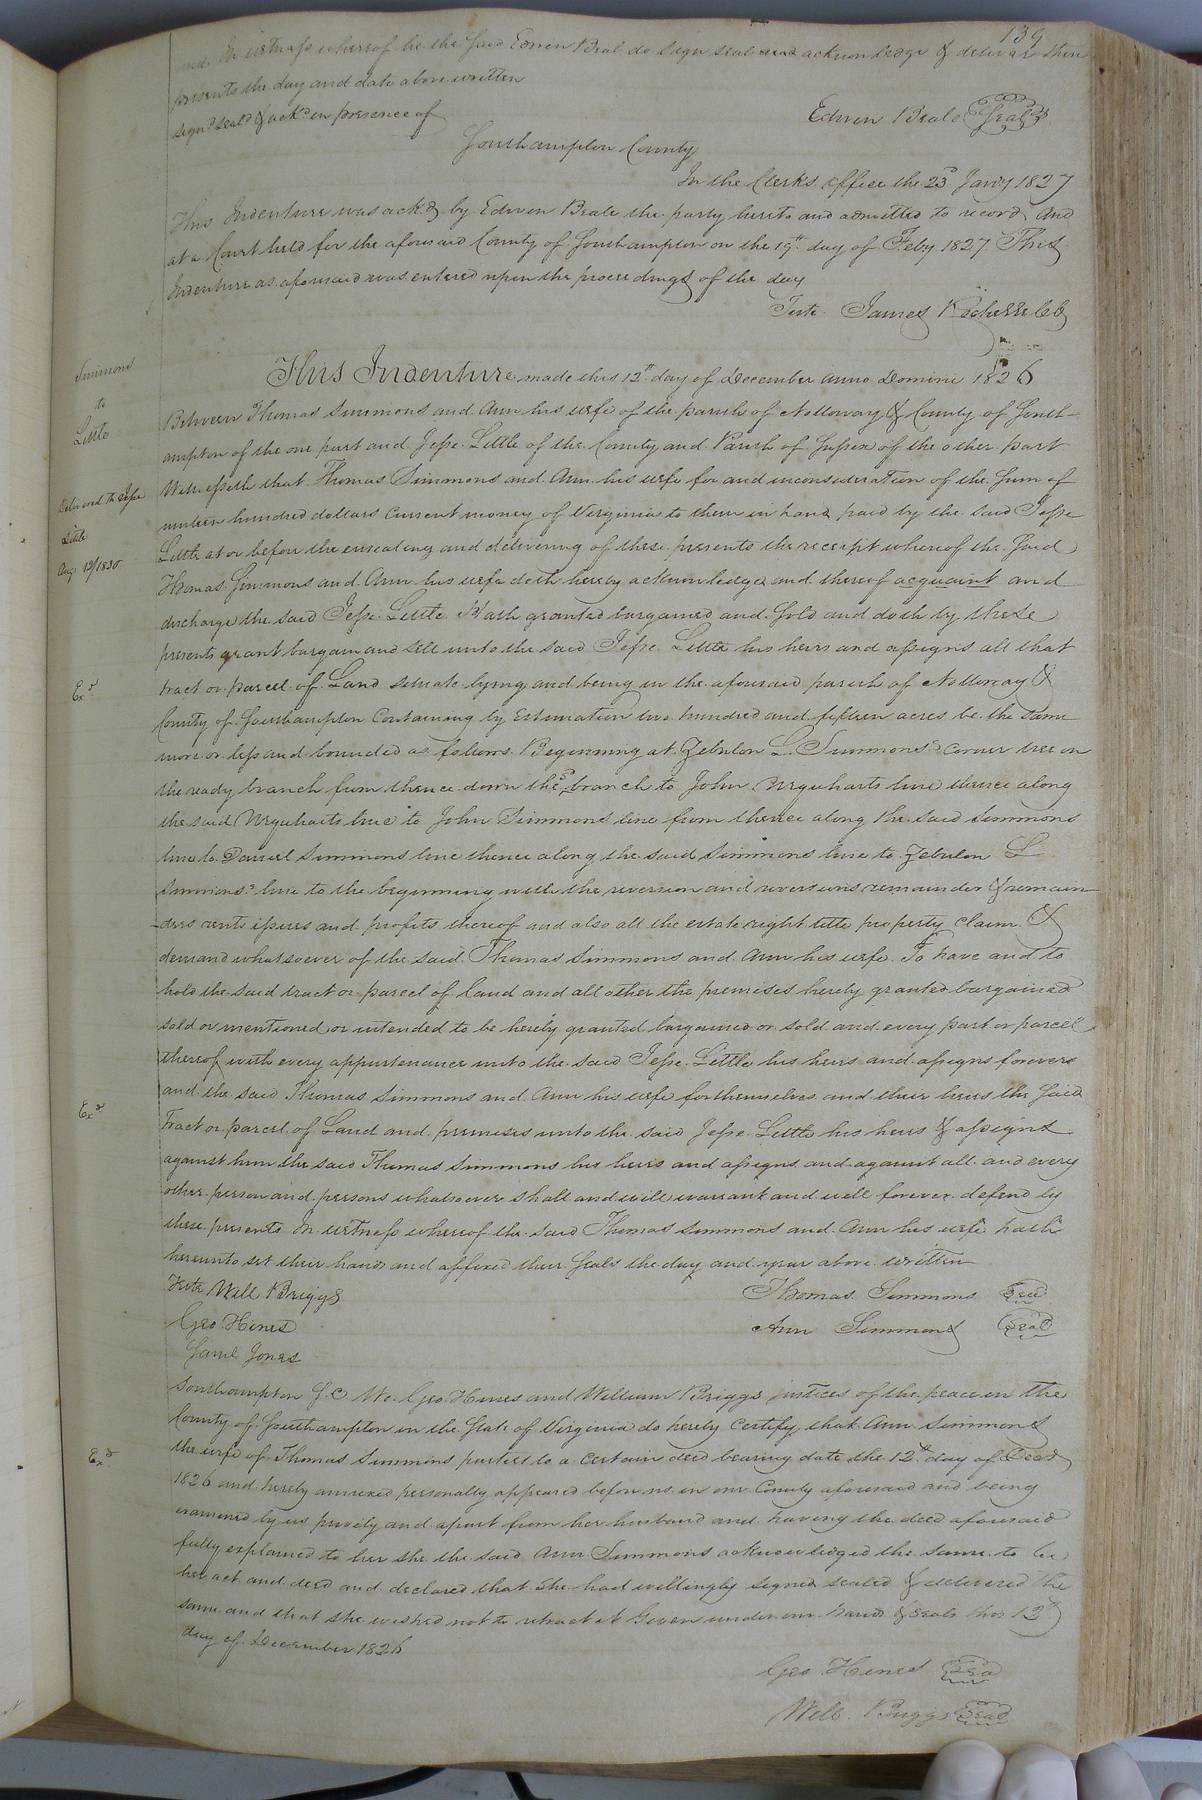 139
and In witness whereof he the said Edwin Beal do sign seal and acknowledge & deliver these
presents the day and date above written
Signd Seald & ackd in presence of
Edwin Beale Seal
Southampton County
In the Clerks office the 23d Jany 1827
This Indenture was ackd by Edwin Beale the party hereto and admitted to record And
at a Court held for the aforesaid County of Southampton on the 19th day of Feby 1827 This
Indenture as aforesaid was entered upon the proceedings of the day
Teste James Rochelle Clk
Simmons
to
Little
Delivered to Jesse
Little
Aug. 13/1830
This Indenture made this 12th day of December Anno Domini 1826
Between Thomas Simmons and Ann his wife of the parish of Nottoway & County of South-
ampton of the one part and Jesse Little of the County and Parish of Sussex of the other part
Witnesseth that Thomas Simmons and Ann his wife for and in consideration of the Sum of
hundred dollars Current money of Virginia to them in hand paid by the said Jesse
Little at or before the ensealing and delivering of these presents the receipt whereof the Said
Thomas Simmons and Ann his wife doth hereby acknowledge and thereof acquaint and
discharge the said Jesse Little Hath granted bargained and Sold and doth by these
presents grant bargain and sell unto the said Jesse Little his heirs and assigns all that
Exd
tract or parcel of Land situate lying and being in the aforesaid parish of Nottoway &
County of Southampton Containing by Estimation two hundred and fifteen acres be the same
more or less and bounded as follows Beginning at Zebulon L. Simmons's corner tree on
the reedy branch from thence down the sd branch to John Urquharts line thence along
the said Urquharts line to John Simmons line from thence along the said Simmons
line to Daniel Simmons line thence along the said Simmons line to Zebulon L
Simmons's line to the beginning with the reversion and reversions remainder & remain-
ders rents issues and profits thereof and also all the estate right title property claim &
demand whatsoever of the said Thomas Simmons and Ann his wife To have and to
hold the said tract or parcel of land and all other the premises hereby granted bargained
sold or mentioned or intended to be hereby granted bargained or sold and every part or parcel
thereof with every appurtenance unto the said Jesse Little his heirs and assigns forever
and the said Thomas Simmons and Ann his wife for themselves and their heirs the Said
Exd
Tract or parcel of Land and premises unto the said Jesse Little his heirs & assigns
against him the said Thomas Simmons his heirs and assigns and against all and every
other person and persons whatsoever shall and will warrant and will forever defend by
these presents In witness whereof the said Thomas Simmons and Ann his wife hath
hereunto set their hands and affixed their Seals the day and year above written
Teste Will Briggs
Thomas Simmons Seal
Geo Hines
Ann Simmons Seal
Saml Jones
Southampton Sc We Geo Hines and William Briggs justices of the peace in the
County of Southampton in the State of Virginia do hereby Certify that Ann Simmons
Exd
the wife of Thomas Simmons parties to a certain deed bearing date the 12th day of Decr
1826 and hereby annexed personally appeared before us in our County aforesaid and being
examined by us privily and apart from her husband and having the deed aforesaid
fully explained to her she the said Ann Simmons acknowledged the same to be
her act and deed and declared that she had willingly signed sealed & delivered the
same and that she wished not to retract it Given under our hands & Seals this 12th
day of December 1826
Geo Hines Seal
Will. Briggs Seal